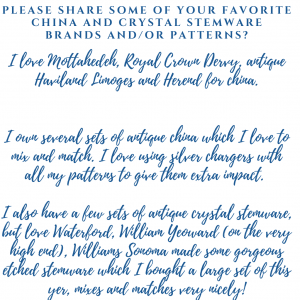 PLEASE SHARE SOME OF YOUR FAVORITE
CHINA AND CRYSTAL STEMWARE
BRANDS AND/OR PATTERNS?
I love Mottahedeh, Royal Crown Dervy, antique
Haviland Limoges and Herend for china.
I own several sets of antique china which I love to
mix and match. I love using silver chargers with
all my patterns to give them extra impact.
I also have a few sets of antique crystal stemware,
but love Waterford, William Yeoward (on the very
high end), Williams Sonoma made some gorgeous
etched stemware which I bought a large set of this
yer, mixes and matches very nicely!